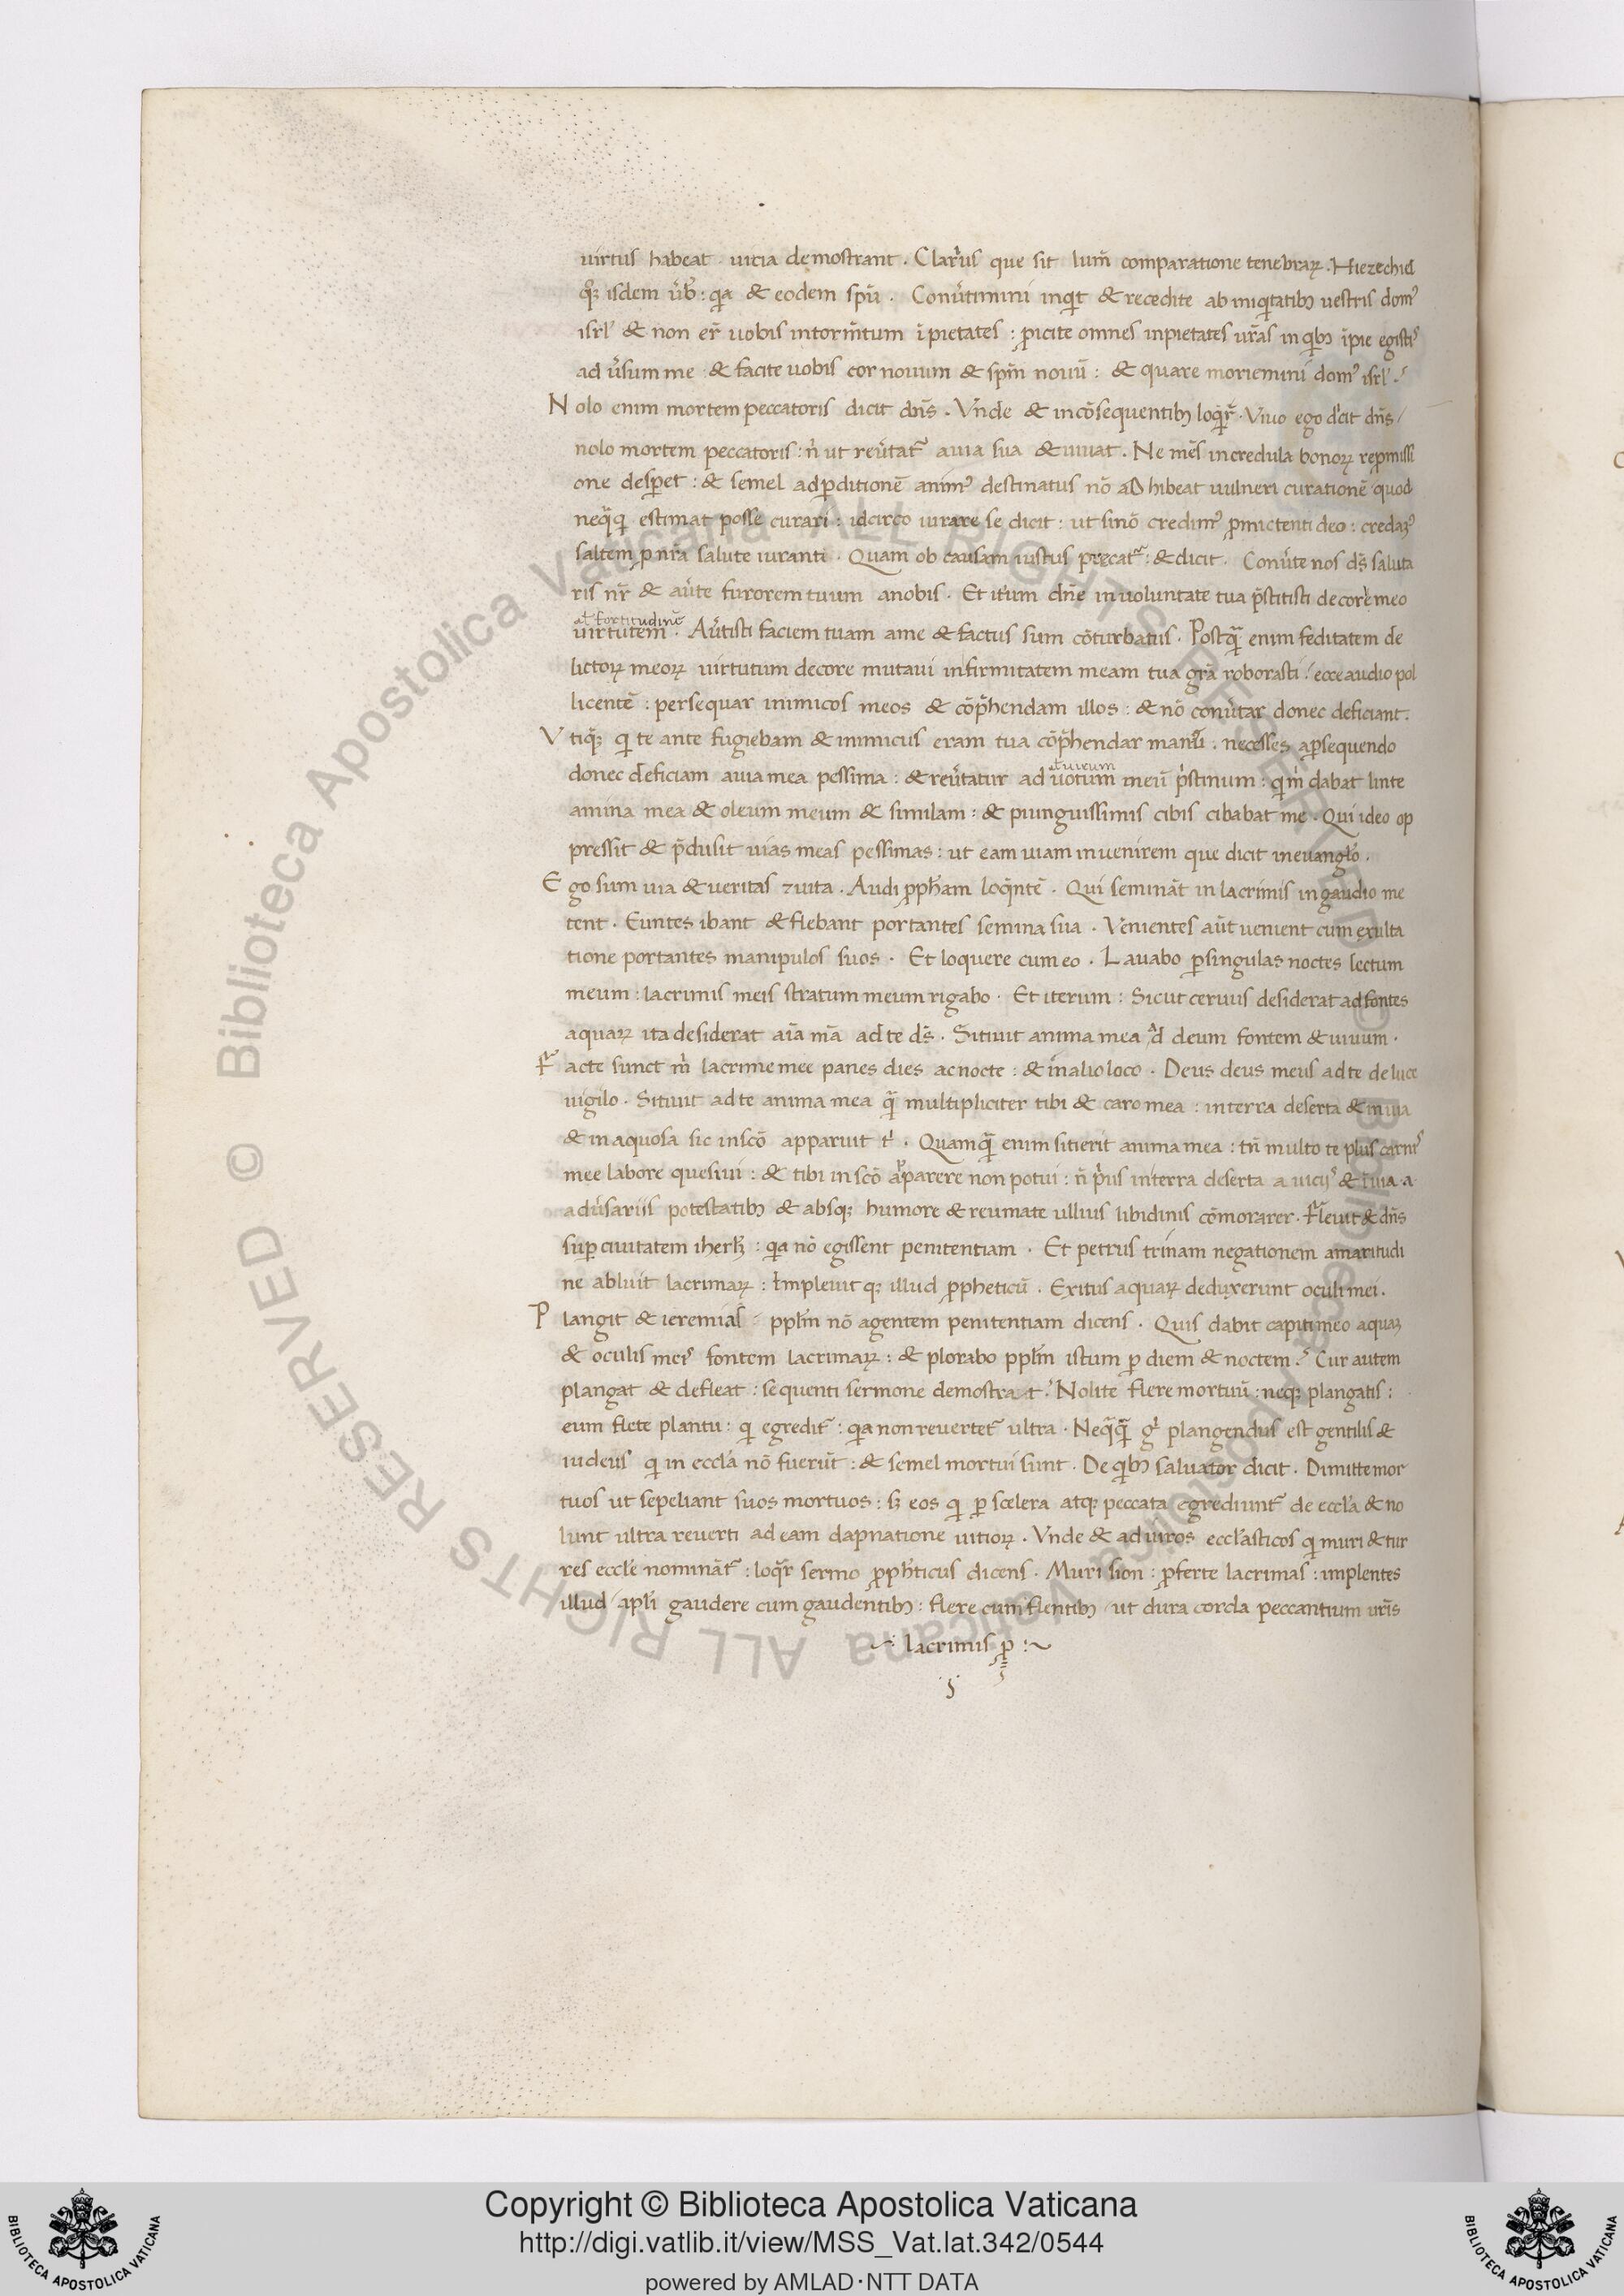 virtus habeat. uitia demostrant. Clari᷒us que sit lum̅ comparatione tenebraꝝ. Hiezechiel
qꝫ isdem ūb̅: qa & eodem spū. Conu̅timini inqt & recedite ab iniqtatibꝫ uestris domꝰ
isrl' & non er̅ uobis intorm̅tum i̅pietates: ꝓicite omnes inpietates ur̅as in qbꝫ i̅pie egistiˢ
ad u̅sum me & facite uobis cor nouum & spm̅ nouū: & quare moriemini domꝰ isrl'.
Nolo enim mortem peccatoris dicit dn̅s. Vnde & incō̅sequentibꝫ loqr̅. Viuo ego dicit dn̅s/
nolo mortem peccatoris: n̅ ut reu̅tat᷑ auia sua & uiuat. Ne me̅s incredula bonoꝝ repmissi
one desꝑet: & semel adꝑditionē animꝰ destinatus nō adhibeat uulneri curationē quod
neq̅q estimat posse curari: idcirco iurare se dicit: ut sinō credimꝰ ꝓmictenti deo: credamꝰ
saltem ꝑ nr̅a salute iuranti. Quam ob causam iustus precat᷑: & dicit. Conu̅te nos ds̅ saluta
ris nr̅ & au̅te furorem tuum anobis. Et it̅um dn̅e in uoluntate tua p̅stitisti decorē meo
al' fortitudinē
uirtutem. Au̅tisti faciem tuam ame & factus sum cōturbatus. Postq̅ enim feditatem de
lictoꝝ meoꝝ uirtutum decore mutaui infirmitatem meam tua gr̅a roborasti: ecce audio pol
licentē: persequar inimicos meos & cōp̅hendam illos: & nō conu̅tar donec deficiant.
Vtiqꝫ qi te ante fugiebam & inimicus eram tua cōp̅hendar manū. necesses aꝑsequendo
al' uirum
donec deficiam auia mea pessima: & reu̅tatur ad uotum meū p̅stinum: qm̅ dabat linte
amina mea & oleum meum & similam: & piunguissimis cibis cibabat me. Qui ideo op
pressit & p̅clusit uias meas pessimas: ut eam uiam inuenirem que dicit ineuanglo.
Ego sum uia & ueritas ⁊ uita. Audi ꝓph̅am loq̅ntē. Qui semināt in lacrimis in gaudio me
tent. Euntes ibant & flebant portantes semina sua. Venientes aūt uenient cum exulta
tione portantes manipulos suos. Et loquere cum eo. Lauabo ꝑsingulas noctes lectum
meum: lacrimis meis stratum meum rigabo. Et iterum: Sicut ceruus desiderat ad fontes
aquaꝝ ita desiderat aīa mā ad te ds̅. Sitiuit anima mea ad deum fontem & uiuum.
Facte sunct m̅ lacrime mee panes dies ac nocte: & in alio loco. Deus deus meus ad te de luce
uigilo. Sitiuit ad te anima mea q̅ multipliciter tibi & caro mea: in terra deserta & inuia
& in aquosa sic in scō apparuit t'. Quamq̅ enim sitierit anima mea: tn̅ multo te plus carniˢ
mee labore quesiui: & tibi in scō apparere non potui: n̅ p̅us in terra deserta a uicijˢ & i̅uia. a
adu̅sariis potestatibꝫ & absqꝫ humore & reumate ullius libidinis cōmorarer. Fleuit & dn̅s
suꝑ ciuitatem iherlꝫ: qa nō egissent penitentiam. Et petrus trinam negationem amaritudi
ne abluit lacrimaꝝ: Impleuit qꝫ illud ꝓpheticū. Exitus aquaꝝ deduxerunt oculi mei.
Plangit & ieremias pplm̅ nō agentem penitentiam dicens. Quis dabit capiti meo aquaꝫ
& oculis meiˢ fontem lacrimaꝝ: & plorabo pplm̅ istum ꝑ diem & noctem. Cur autem
plangat & defleat: sequenti sermone demostra t. Nolite flere mortuū: neqꝫ plangatis:
eum flete plantu: qi egredit᷑: qa non reuertet᷑ ultra. Neq̅q̅ g' plangendus est gentilis &
iudeus qi in eccla̅ nō fuerūt: & semel mortui sunt. De qibꝫ saluator dicit. Dimitte mor
tuos ut sepeliant suos mortuos: sꝫ eos qi ꝑ scelera atqꝫ peccata egrediunt᷑ de eccla̅ & no
lunt ultra reuerti ad eam dapnatione uitioꝝ. Vnde & ad uiros eccla̅sticos qi muri & tur
res eccle̅ nominā t᷑: loqr̅ sermo ꝓph̅ticus dicens. Muri sion: ꝓferte lacrimas: implentes
illud apli̅ gaudere cum gaudentibꝫ: flere cum flentibꝫ ut dura corda peccantium ur̅is
lacrimis ꝓ
Copyright © Biblioteca Apostolica Vaticana
http://digi.vatlib.it/view/MSS_Vat.lat.342/0544
powered by AMLAD·NTT DATA
BIBLIOTECA APOSTOLICA VATICANA
BIBLIOTECA APOSTOLICA VATICANA
© Biblioteca Apostolica Vaticana ALL RIGHTS RESERVED © Biblioteca Apostolica Vaticana ALL RIGHTS RESERVED